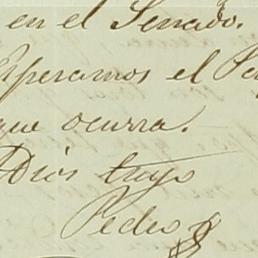 en el Senado.
Esperamos el
que ocurra.
Adios tuyo
Pedro